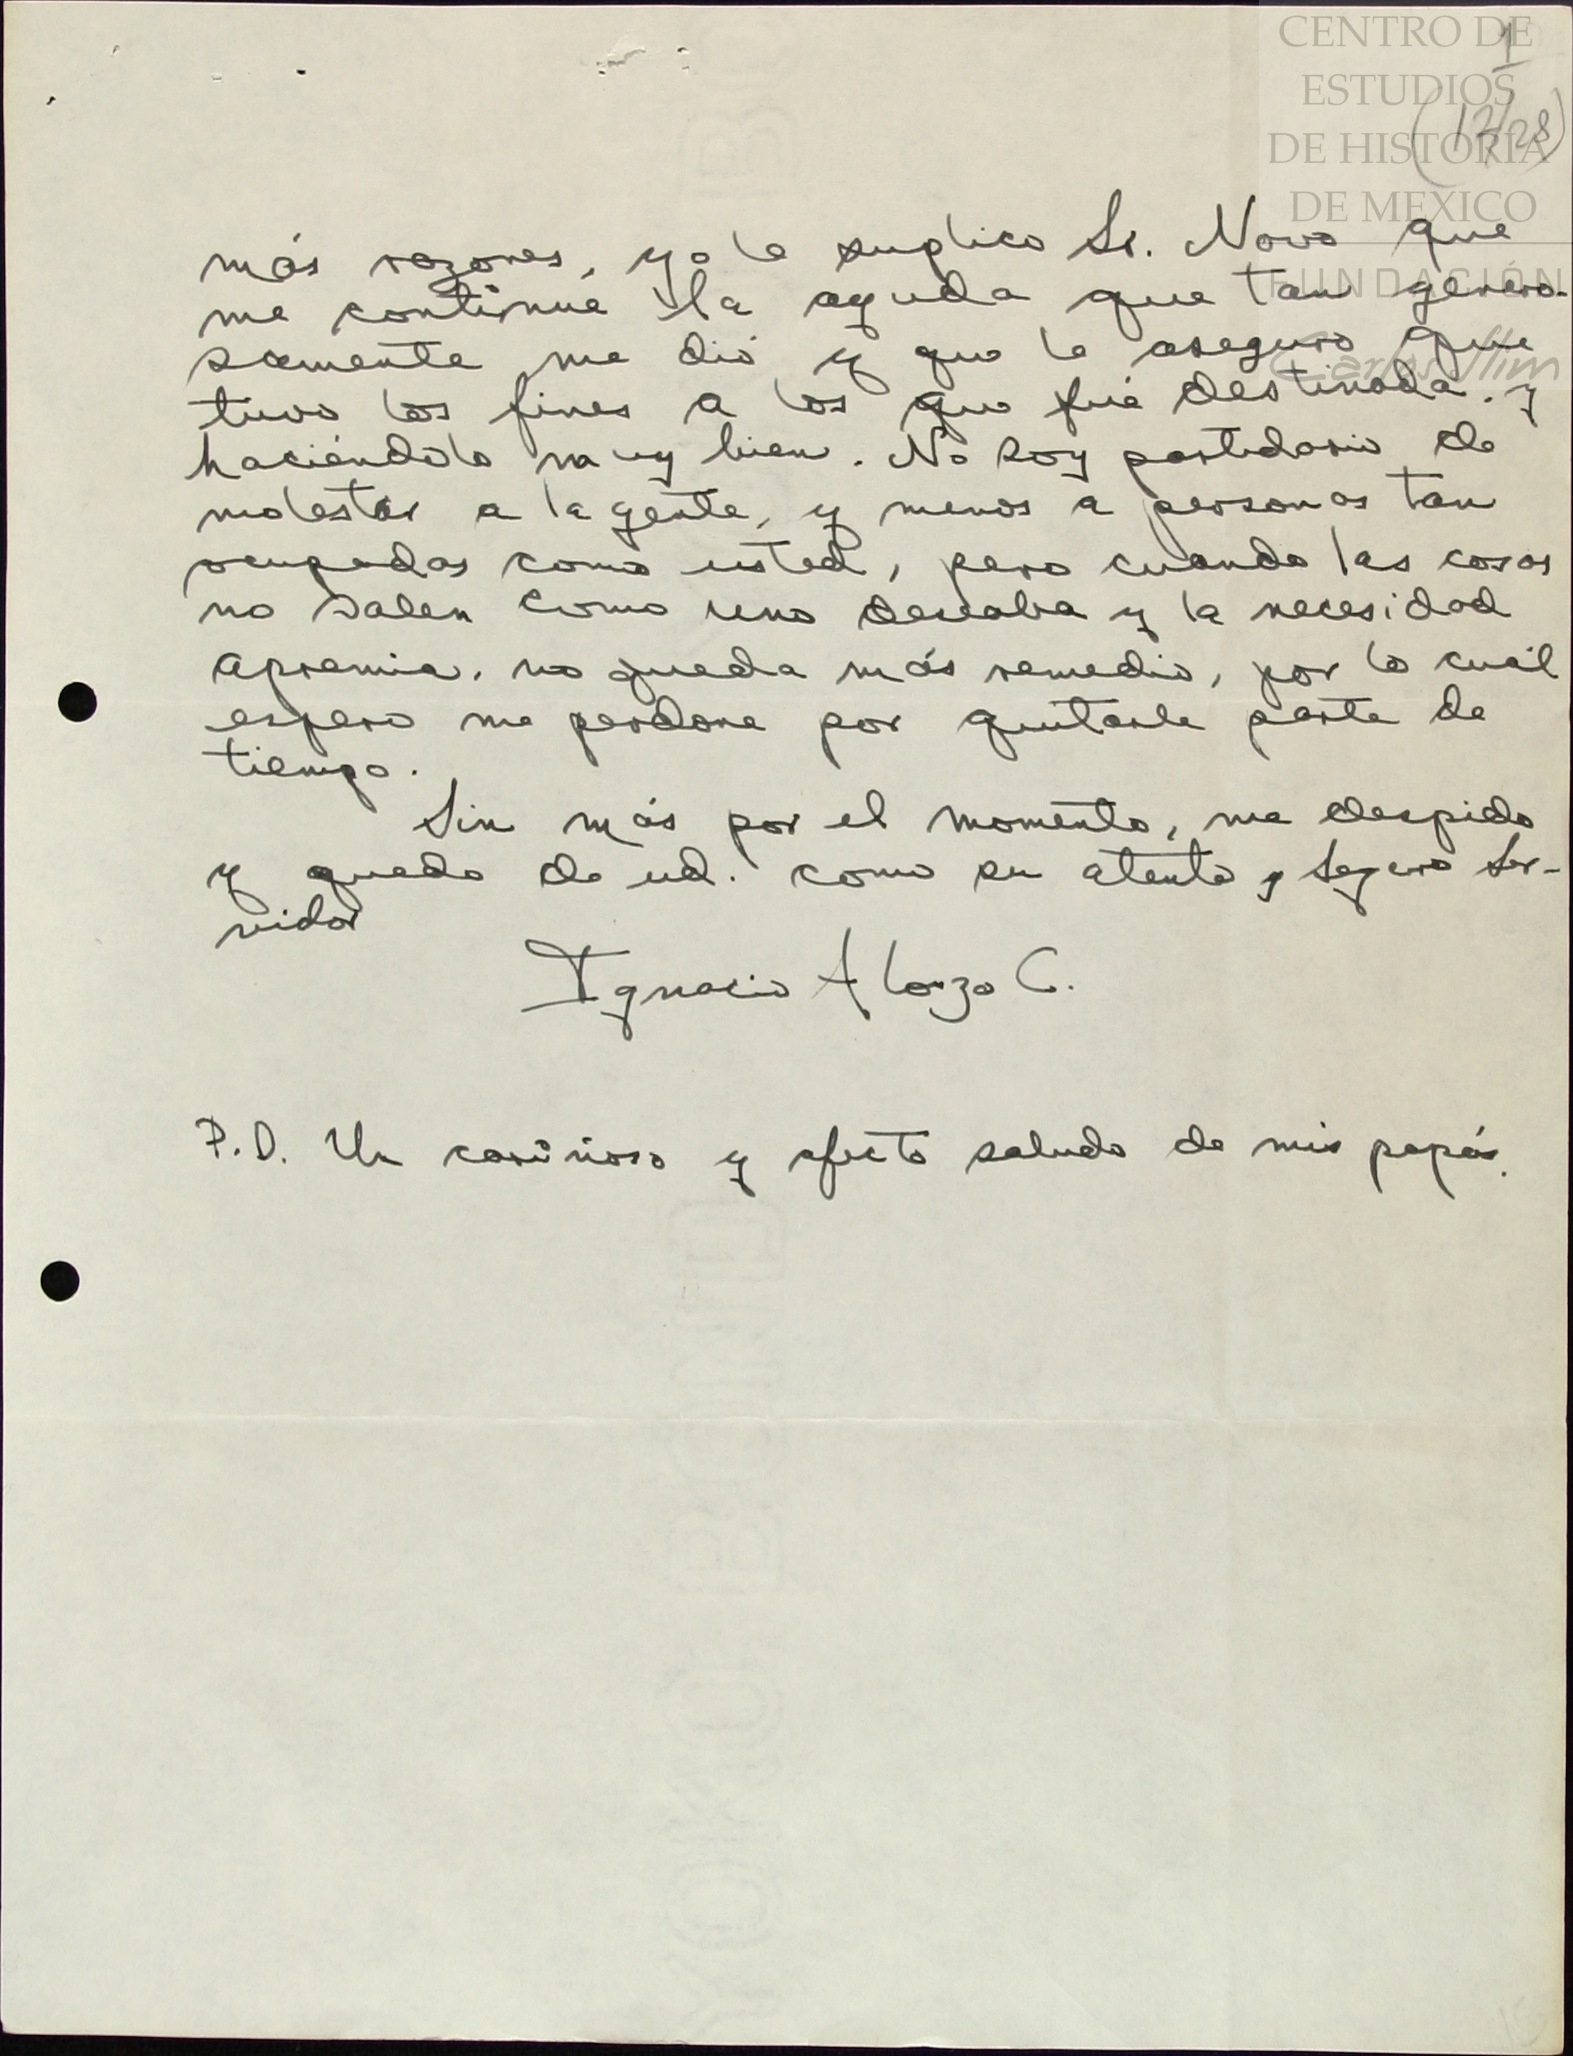 CENTRO DE
ESTUDIOS
DE HISTORIA
DE MEXICO
FUNDACIÓN
Carlos Slim
1
(12/28)
más razones, yo le suplico Sr. Novo que
me continue la ayuda que tan genero-
samente me dió y que le aseguro que
tuvo los fines a los que fué destinada. y
haciéndolo muy bien. No soy partidario de
molestar a la gente, y menos a personas tan
ocupadas como usted, pero cuando las cosas
no salen como uno deseaba y la necesidad
apremia, no queda más remedio, por lo cuál
espero me perdone por quitarle parte de
tiempo.
Sin más por el momento, me despido
y quedo de ud. como su atento y seguro ser-
vidor
Ignacio Alonzo C.
P.D. Un cariñoso y afecto saludo de mis papás.